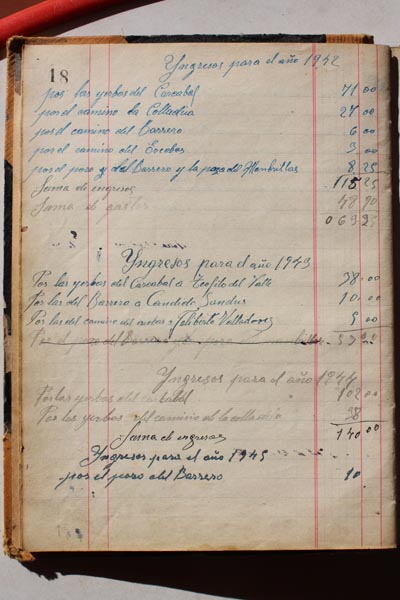 18
Yngresos para el año 1942
por las yerbas del Carcabal 71 00
por el camino la Colladia 27 00
por el camino del Barrero 6 00
por el camino del Escobar 3 00
por el pozo del Barrero y la poza del 8 25
Suma de ingresos 115 25
Suma de gastos 48 90
Yngresos para el año 1943
Por las yerbas del Carcabal a Teofilo del Valle 38 00
Por las del Barrero a Candido Sandus 10 00
Por las del camino del a Filiberto Valladares 5 00
Por el pozo del Barrero
Yngresos para el año 1944
Por las yerbas del carcabal 102 00
Por las yerbas del camino de la colladia 38
Suma de ingresos 140 00
Yngresos para el año 1945
por el pozo del Barrero 10